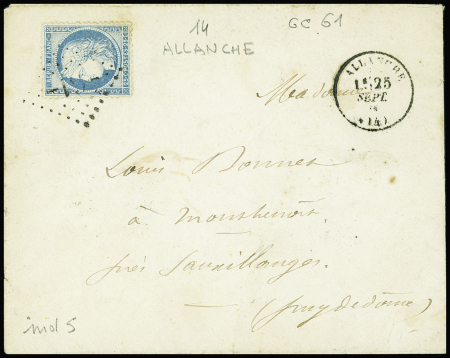 14
ALLANCHE
GC 61
ALLANCHE
25
SEPT.
(14)
Madame
Louis Bonnet
à
près Sauxillanges
(puy de dôme)
ind 5